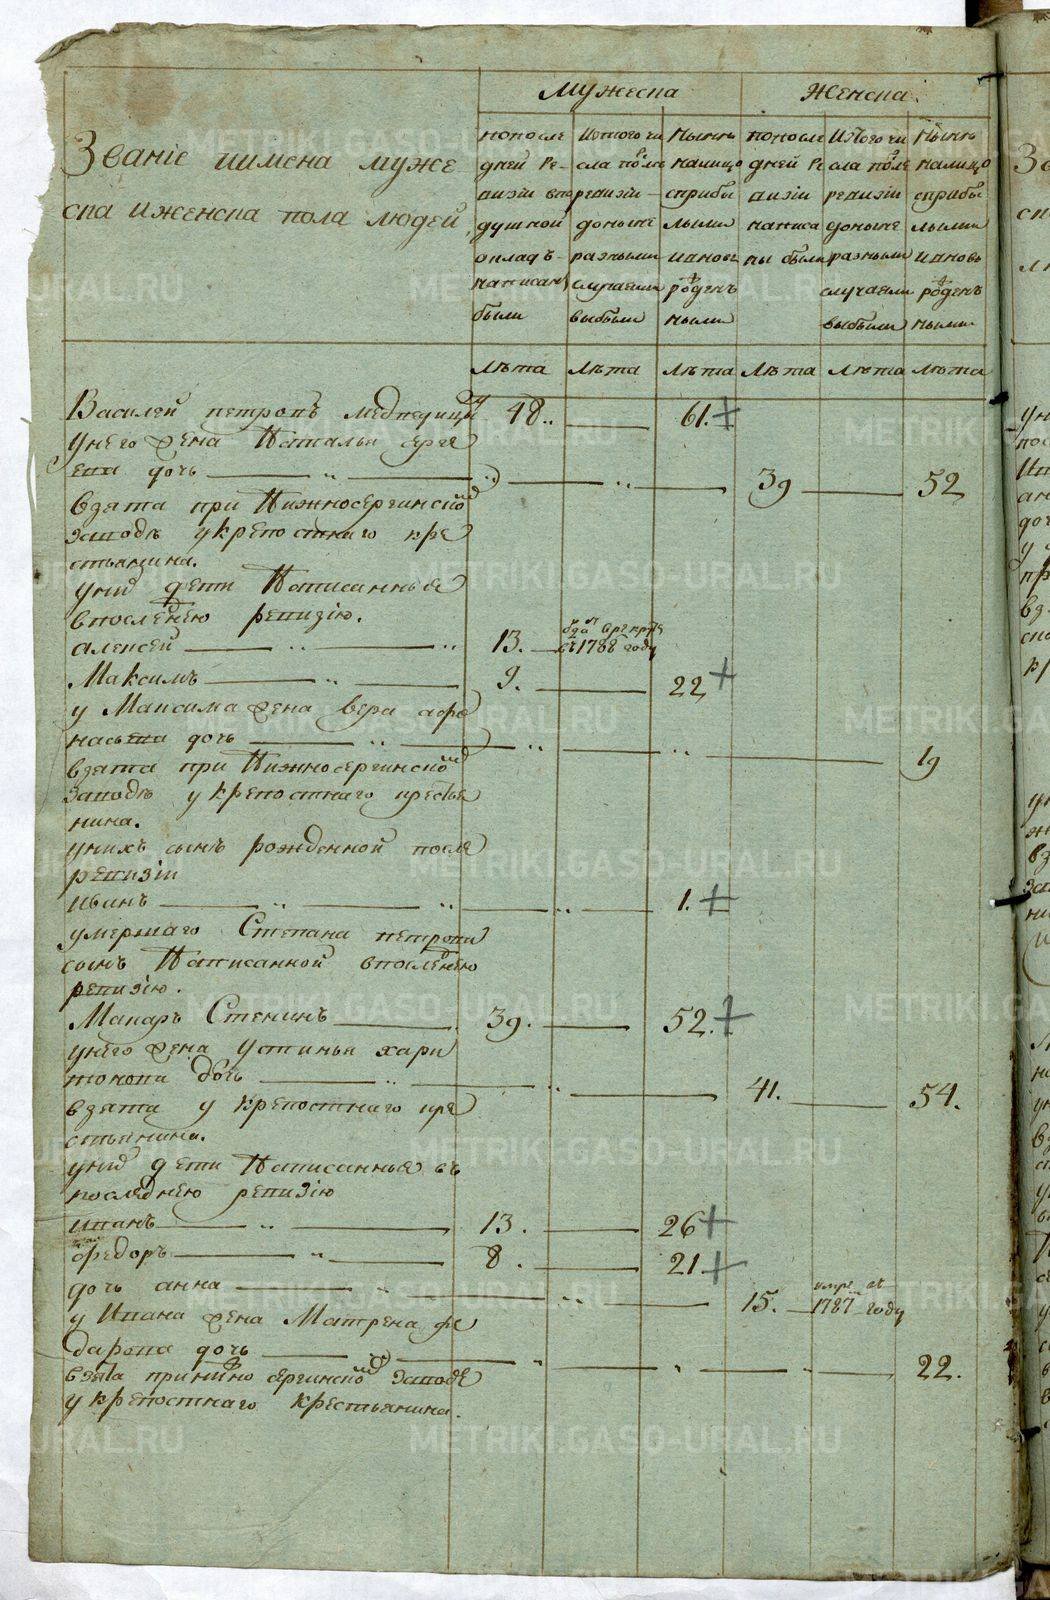 Мужеска
Женска.
Званіе иимена муже
ска иженска пола людей,
попосле
дней ре-
визіи впо
душной
окладъ
написаны
были
Истого чи
сла послъ
ревизіи
доныне
разными
случаями
выбыли
Нынъ
налицо
сприбы
лыми
ивновь
рожденъ
ными
попосле
дней ре
визіи
написа
ны были
Истого чи
сла послъ
ревизіи
доныне
разными
случаями
выбыли
Нынъ
налицо
сприбы
лыми
ивновь
рожденъ
ными
лъта лъта лъта лъта лъта лъта
Василей петровъ Медведицы 48. 61.+
унего жена Наталья серге
ева дочь 39 52
взята при Нижносергинскомъ
заводъ укрепостнаго кре
стьянина.
унихъ дети Написанныя
впоследнею ревизію.
алексей 13. в рекруты
въ 1788 году
Максимъ 9. 22 +
у Максима жена вера афо
насьева дочь 19
взята при Нижносергинскомъ
заводъ укрепостнаго крестья
нина.
унихъ сынъ рожденной после
ревизіи
иванъ 1. +
умершаго Степана петрова
сынъ Написанной впоследнею
ревизію.
Макаръ Степинъ 39. 52.+
унего жена Устинья хари
тонова дочь 41. 54.
взята у крепостнаго кре
стьянина.
унихъ дети Написанныя въ
последнею ревизію
иванъ 13. 26+
федоръ 8. 21.+
дочь анна 15. умре въ
1787 году
у Ивана жена Матрена фе
дарова дочь 22.
взята принижно сергинскомъ заводе
укрепостнаго крестьянина.
METRIKI.GASO-URAL.RU